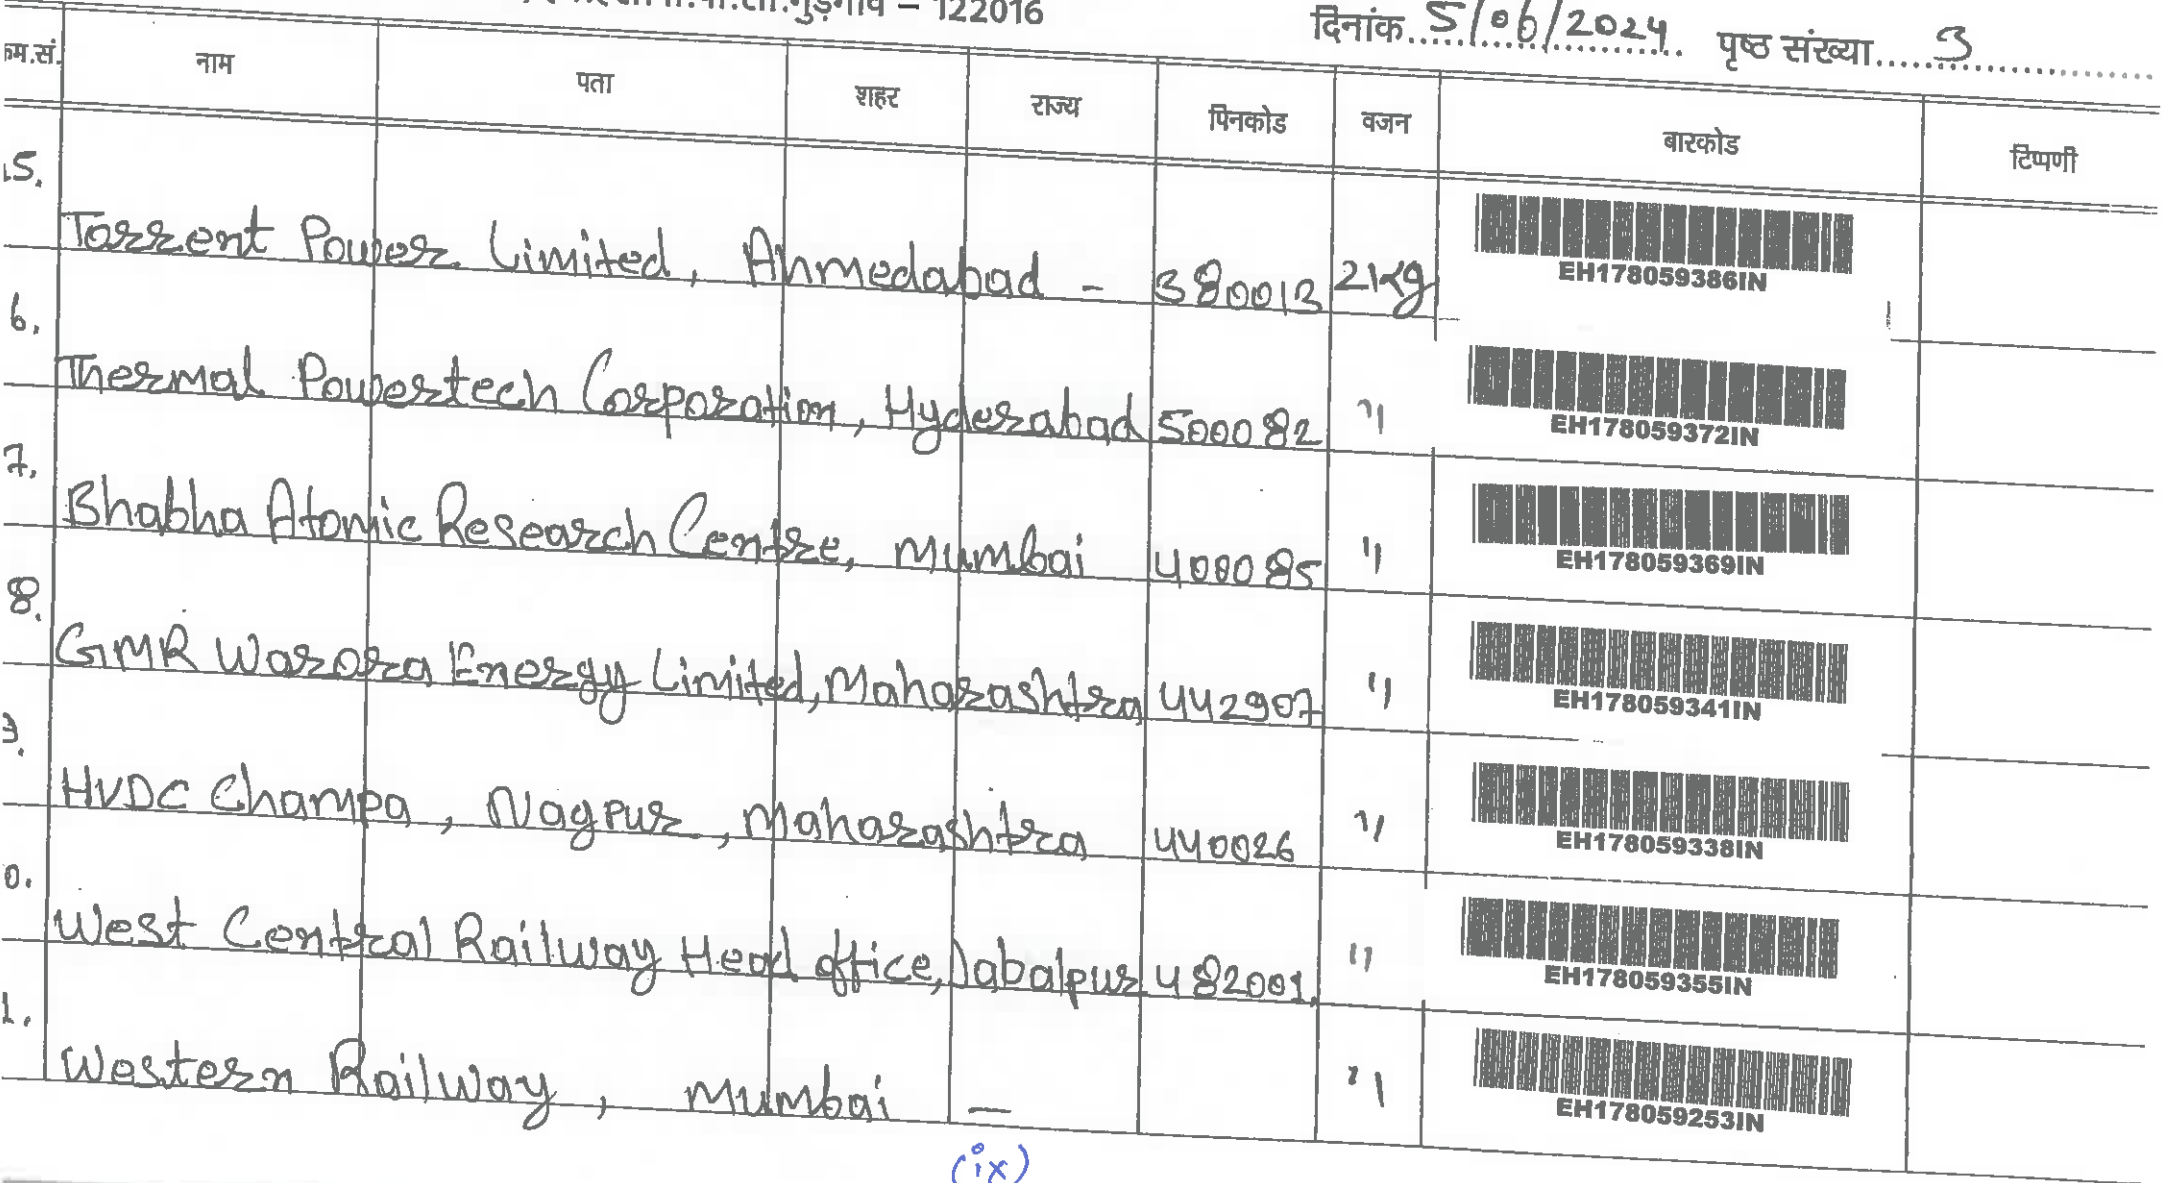 गुड़गांव – 122016
दिनांक 5/06/2024 पृष्ठ संख्या 3
क्रम.सं. नाम पता शहर राज्य पिनकोड वजन बारकोड टिप्पणी
15. Torrent Power Limited, Ahmedabad - 380013 2Kg EH178059386IN
6. Thermal Powertech Corporation, Hyderabad 500082 " EH178059372IN
7. Bhabha Atomic Research Centre, Mumbai 400085 " EH178059369IN
8. GMR Warora Energy Limited, Maharashtra 442907 " EH178059341IN
9. HVDC Champa, Nagpur, Maharashtra 440026 " EH178059338IN
0. West Central Railway Head office, Jabalpur 482001. " EH178059355IN
1. Western Railway, Mumbai — " EH178059253IN
(ix)